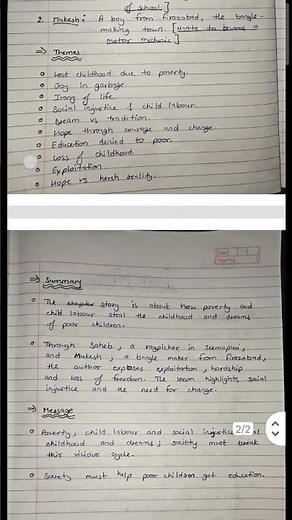 of school.]
2. Mukesh: A boy from Firozabad, the bangle-
making town. [wants to become a
motor mechanic]
⇒ Themes
o Lost childhood due to poverty.
o Joy in garbage.
o Irony of life.
o Social injustice & child labour.
o Dream vs tradition.
o Hope through courage and change.
o Education denied to poor.
o Loss of childhood.
o Exploitation.
o Hope vs harsh reality.
⇒ Summary
o The chapter story is about how poverty and
child labour steal the childhood and dreams
of poor children.
o Through Saheb, a ragpicker in Seemapuri,
and Mukesh, a bangle maker from Firozabad,
the author exposes exploitation, hardship
and loss of freedom. The lesson highlights social
injustice and the need for change.
⇒ Message
o Poverty, child labour and social injustice
childhood and dreams; society must break
this vicious cycle.
2/2
o Society must help poor children get education.